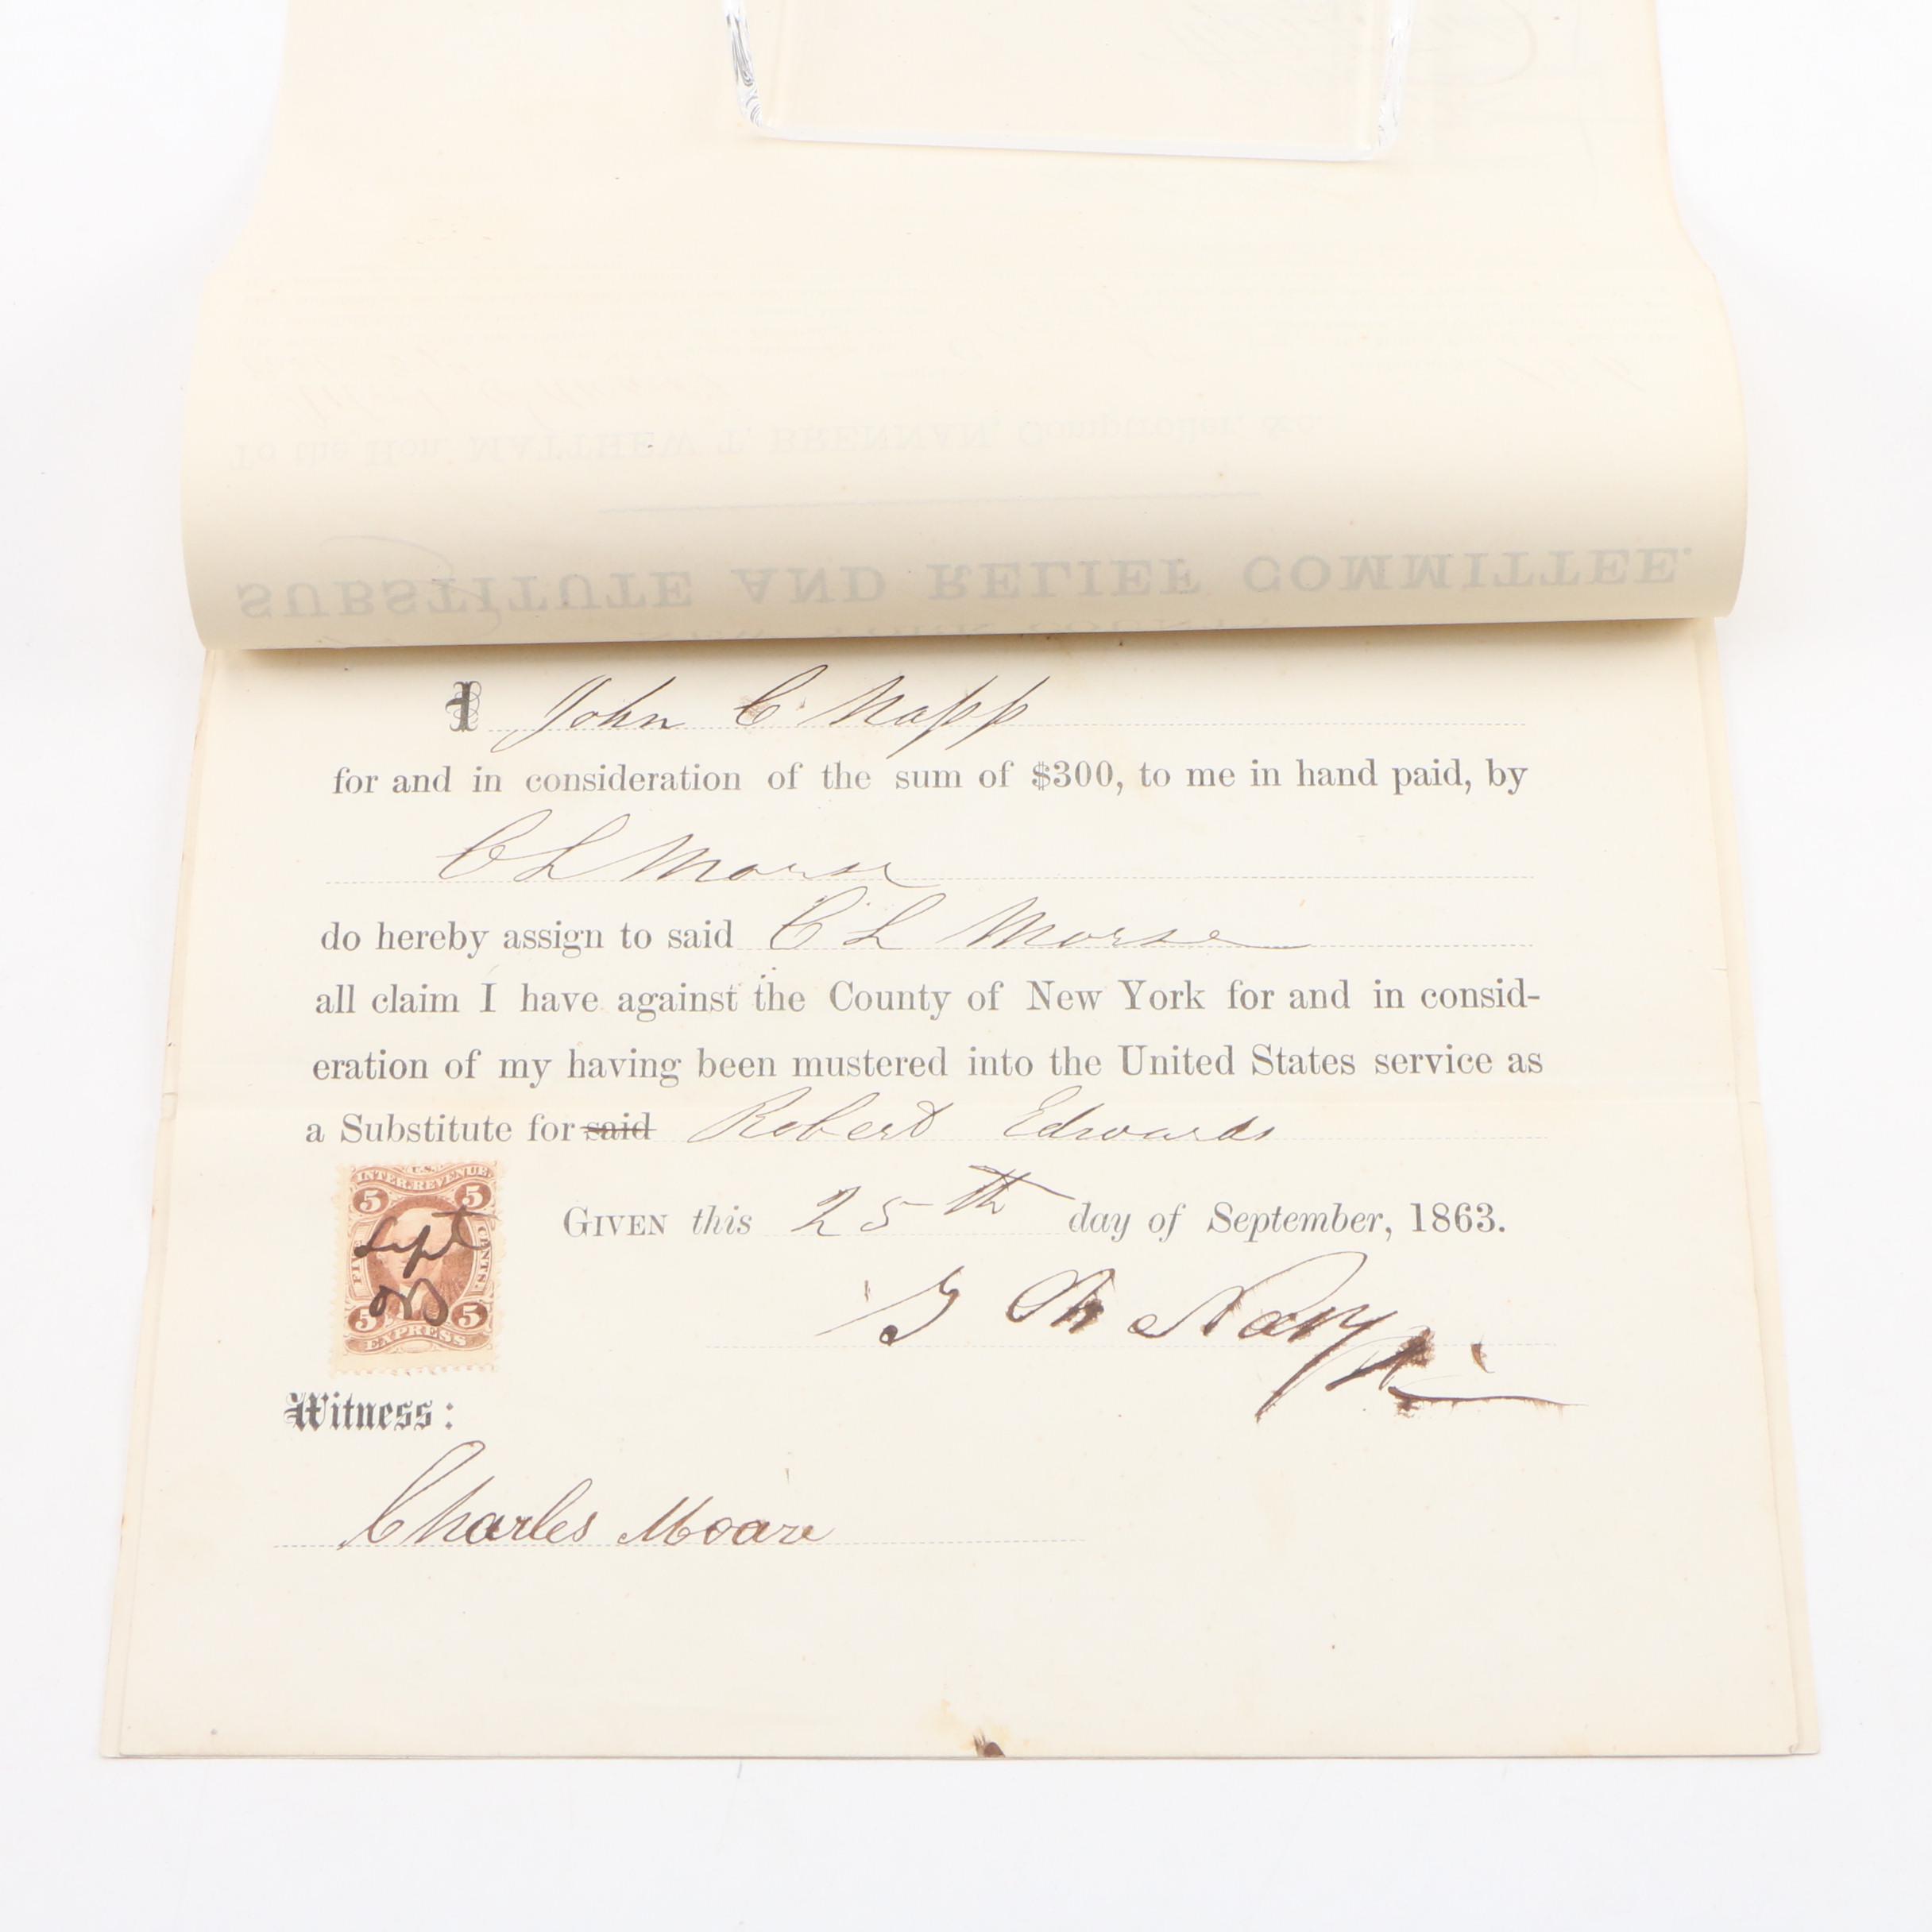 To the Hon. MATTHEW T. BRENNAN, Comptroller, &c.
SUBSTITUTE AND RELIEF COMMITTEE.
I John C Napp
for and in consideration of the sum of $300, to me in hand paid, by
C L Morse
do hereby assign to said C L Morse
all claim I have against the County of New York for and in consid-
eration of my having been mustered into the United States service as
a Substitute for said Robert Edwards
U.S.
INTER. REVENUE
5 5
FIVE CENTS.
Sept
5 5
EXPRESS
GIVEN this 25th day of September, 1863.
Witness:
Charles Moare